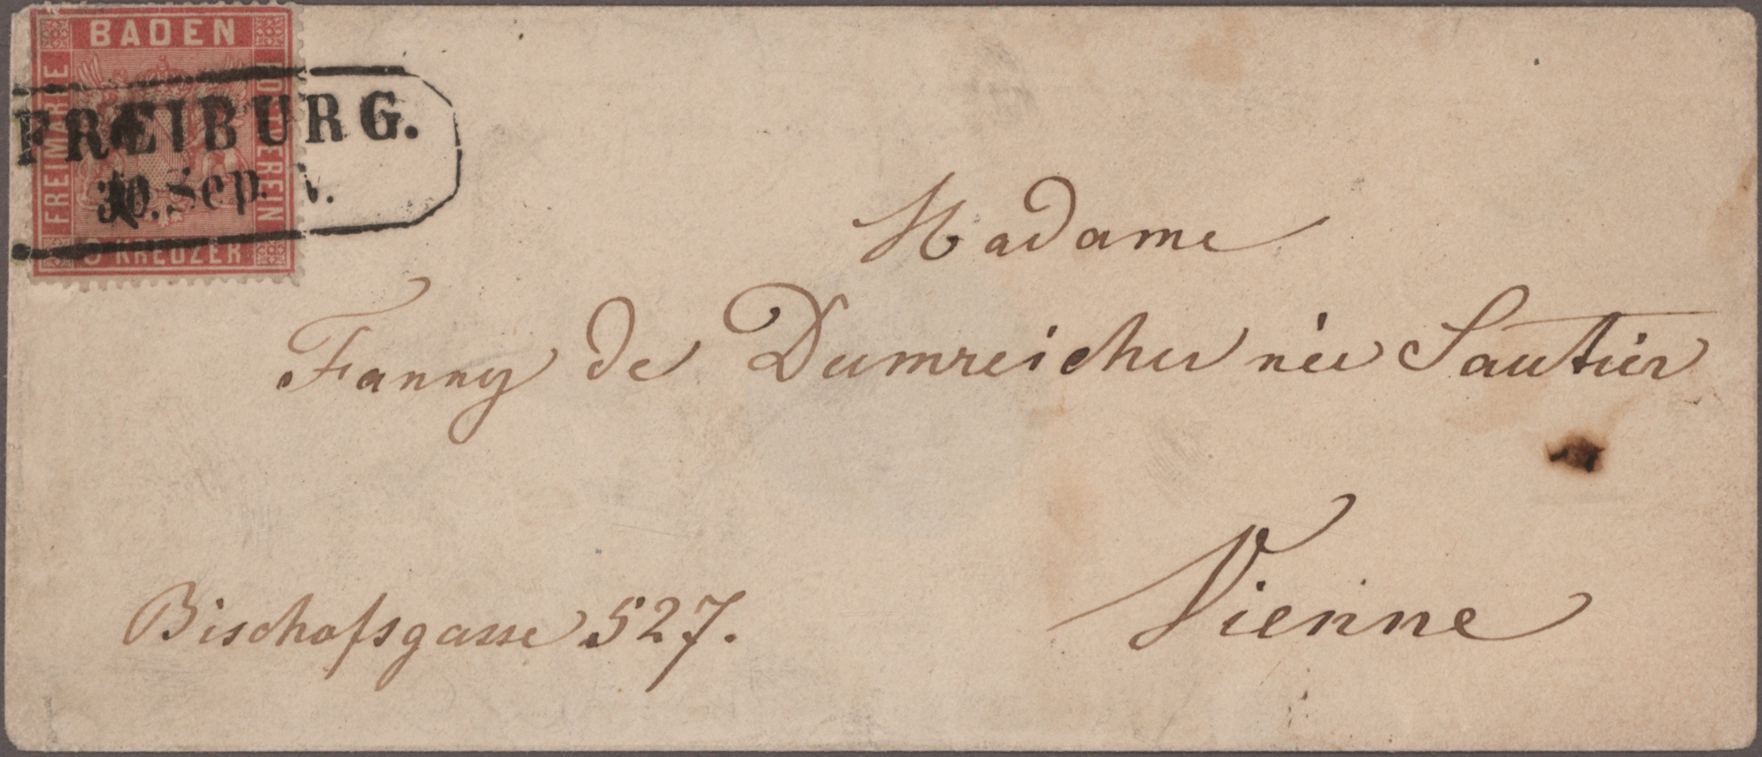 BADEN
FREIMARKE
POSTVEREIN
9 KREUZER
FREIBURG.
30. Sep.
Madame
Fanny de Dumreicher née Sautier
Vienne
Bischofsgasse 527.